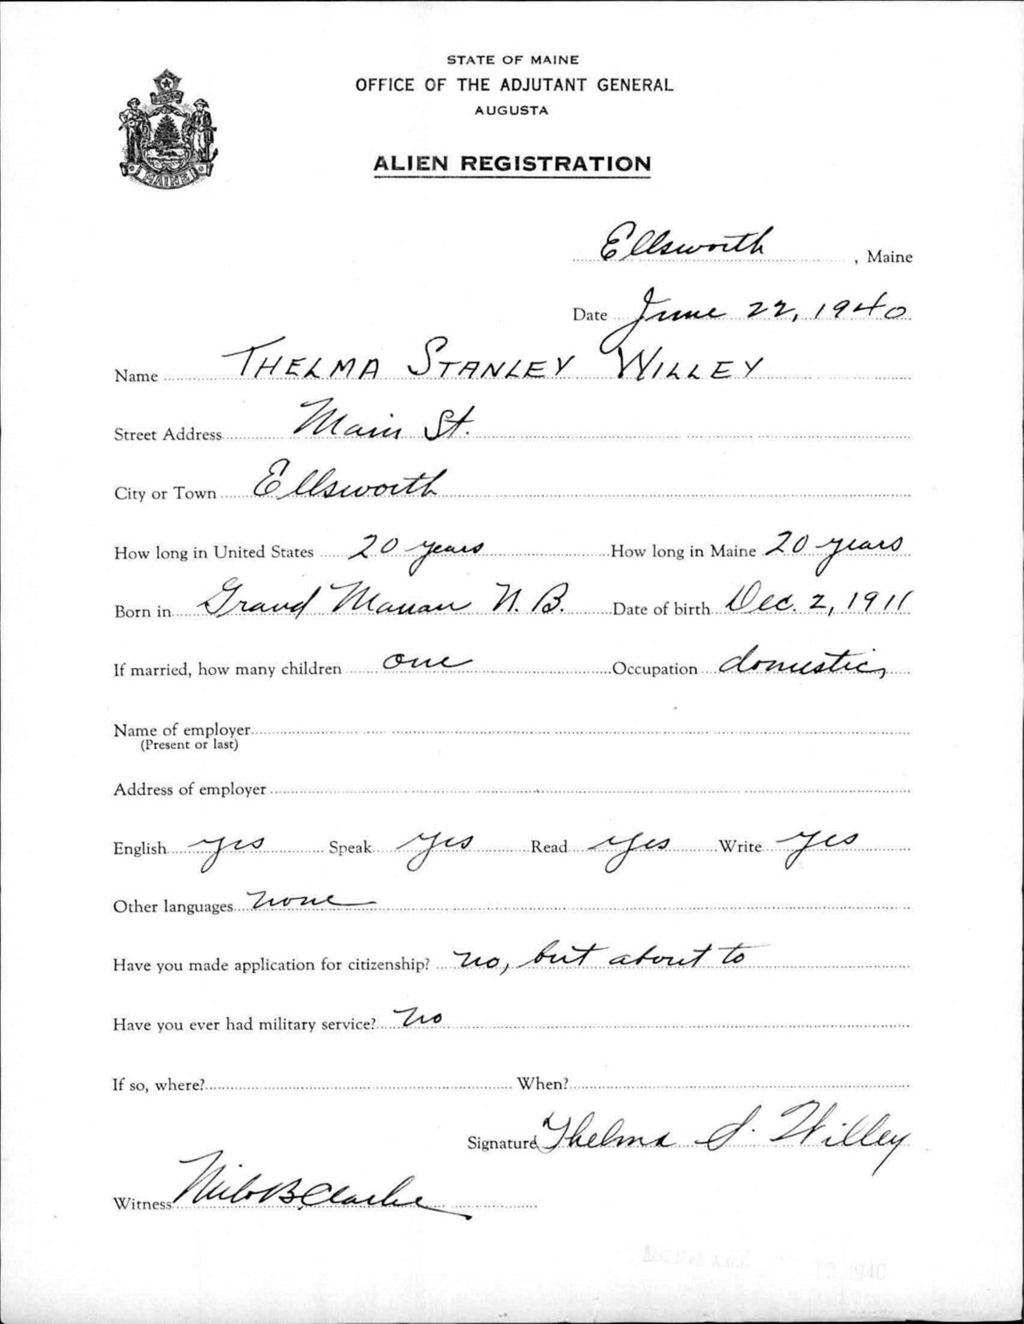 STATE OF MAINE
OFFICE OF THE ADJUTANT GENERAL
AUGUSTA
ALIEN REGISTRATION
MAINE
Ellsworth, Maine
Date June 22, 1940
Name THELMA STANLEY WILLEY
Street Address Main St.
City or Town Ellsworth
How long in United States 20 years How long in Maine 20 years
Born in Grand Manan N. B. Date of birth Dec. 2, 1911
If married, how many children one Occupation domestic,
Name of employer
(Present or last)
Address of employer
English yes Speak yes Read yes Write yes
Other languages none
Have you made application for citizenship? no, but about to
Have you ever had military service? No
If so, where? When?
Signature Thelma S. Willey
Witness Milo B. Clarke
1940